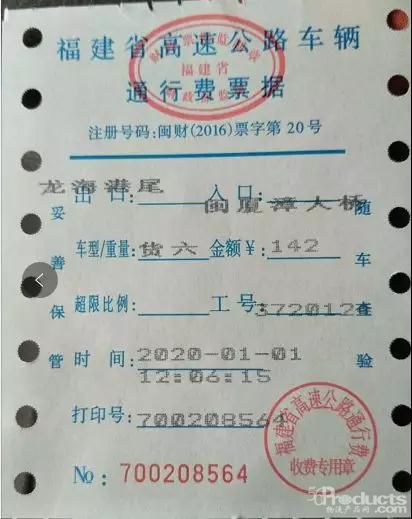 福建省高速公路车辆
通行费票据
福建省
注册号码:闽财(2016)票字第20号
龙海港尾
出口: 入口:
闽厦漳大桥
车型/重量:货六 金额¥:142
超限比例: 工号:
3720128
时间:2020-01-01
12:06:15
打印号:700208564
No: 700208564
妥善保管
随车查验
福建省高速公路通行费
收费专用章
Products
物流产品网.com